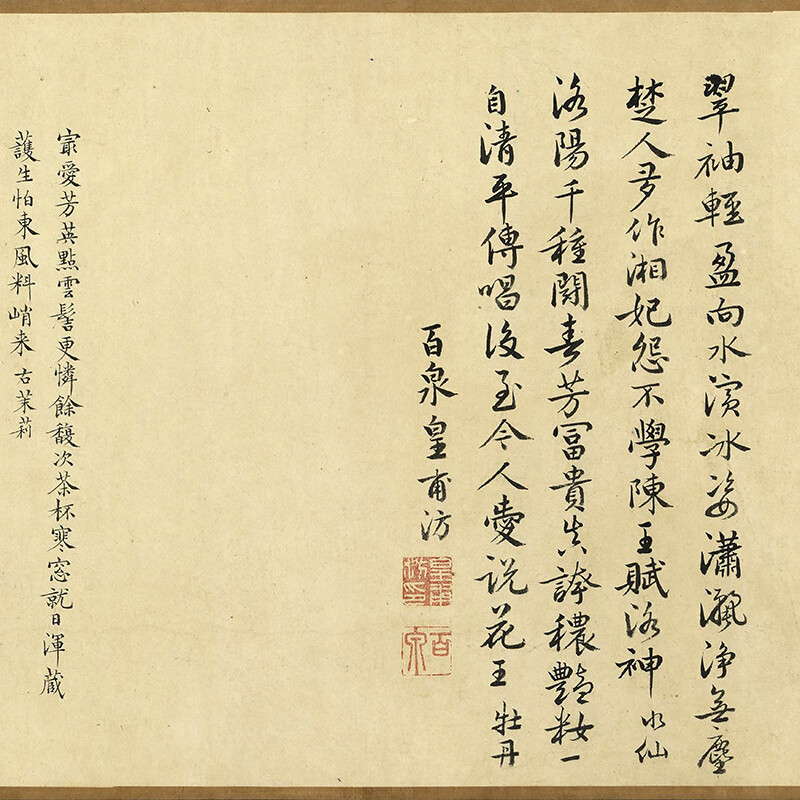 翠袖輕盈向水濱冰姿瀟灑淨無塵
楚人多作湘妃怨不學陳王賦洛神 水仙
洛陽千種鬪春芳富貴真誇穠艷粧一
自清平傳唱後至今人愛說花王 牡丹
百泉皇甫汸
皇甫汸印
百泉
㝡愛芳英點雲髻更憐餘馥次茶杯寒窓就日渾蔵
護生怕東風料峭来 右茉莉